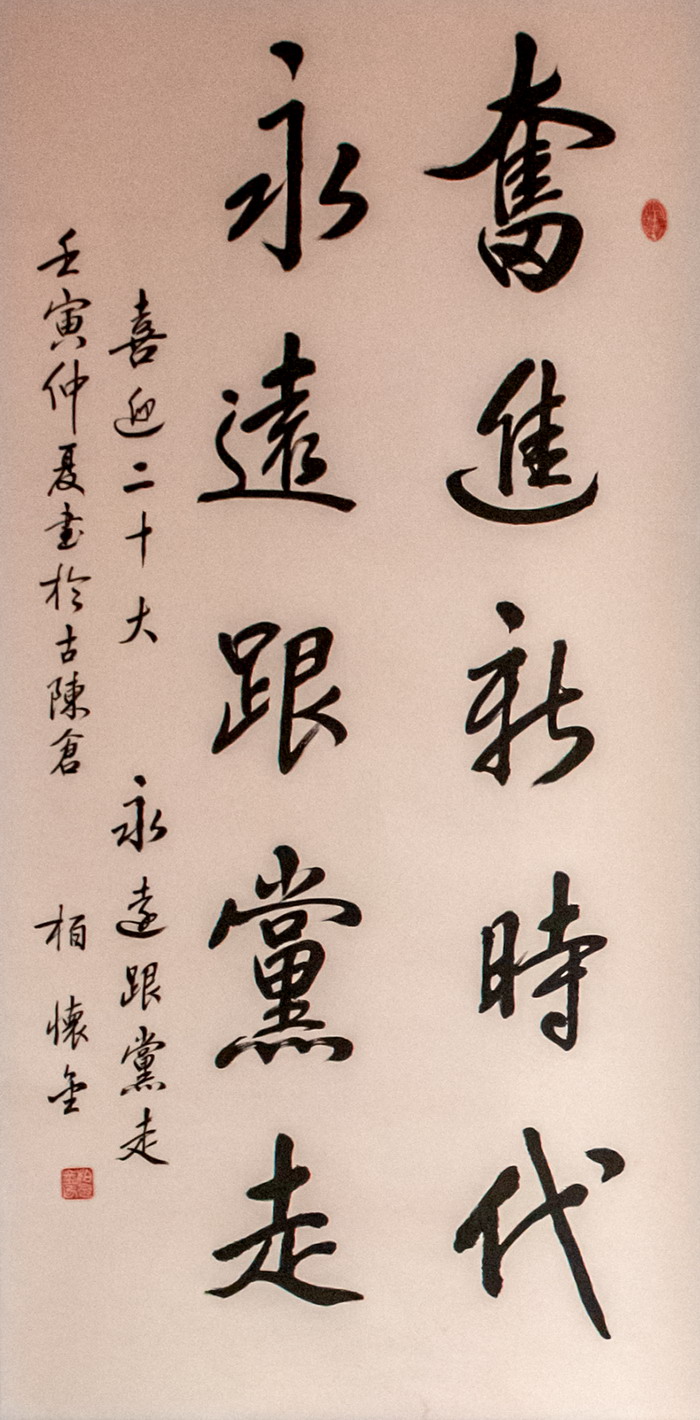 奮進新時代
永遠跟黨走
喜迎二十大 永遠跟黨走
壬寅仲夏書於古陳倉 柏懷金